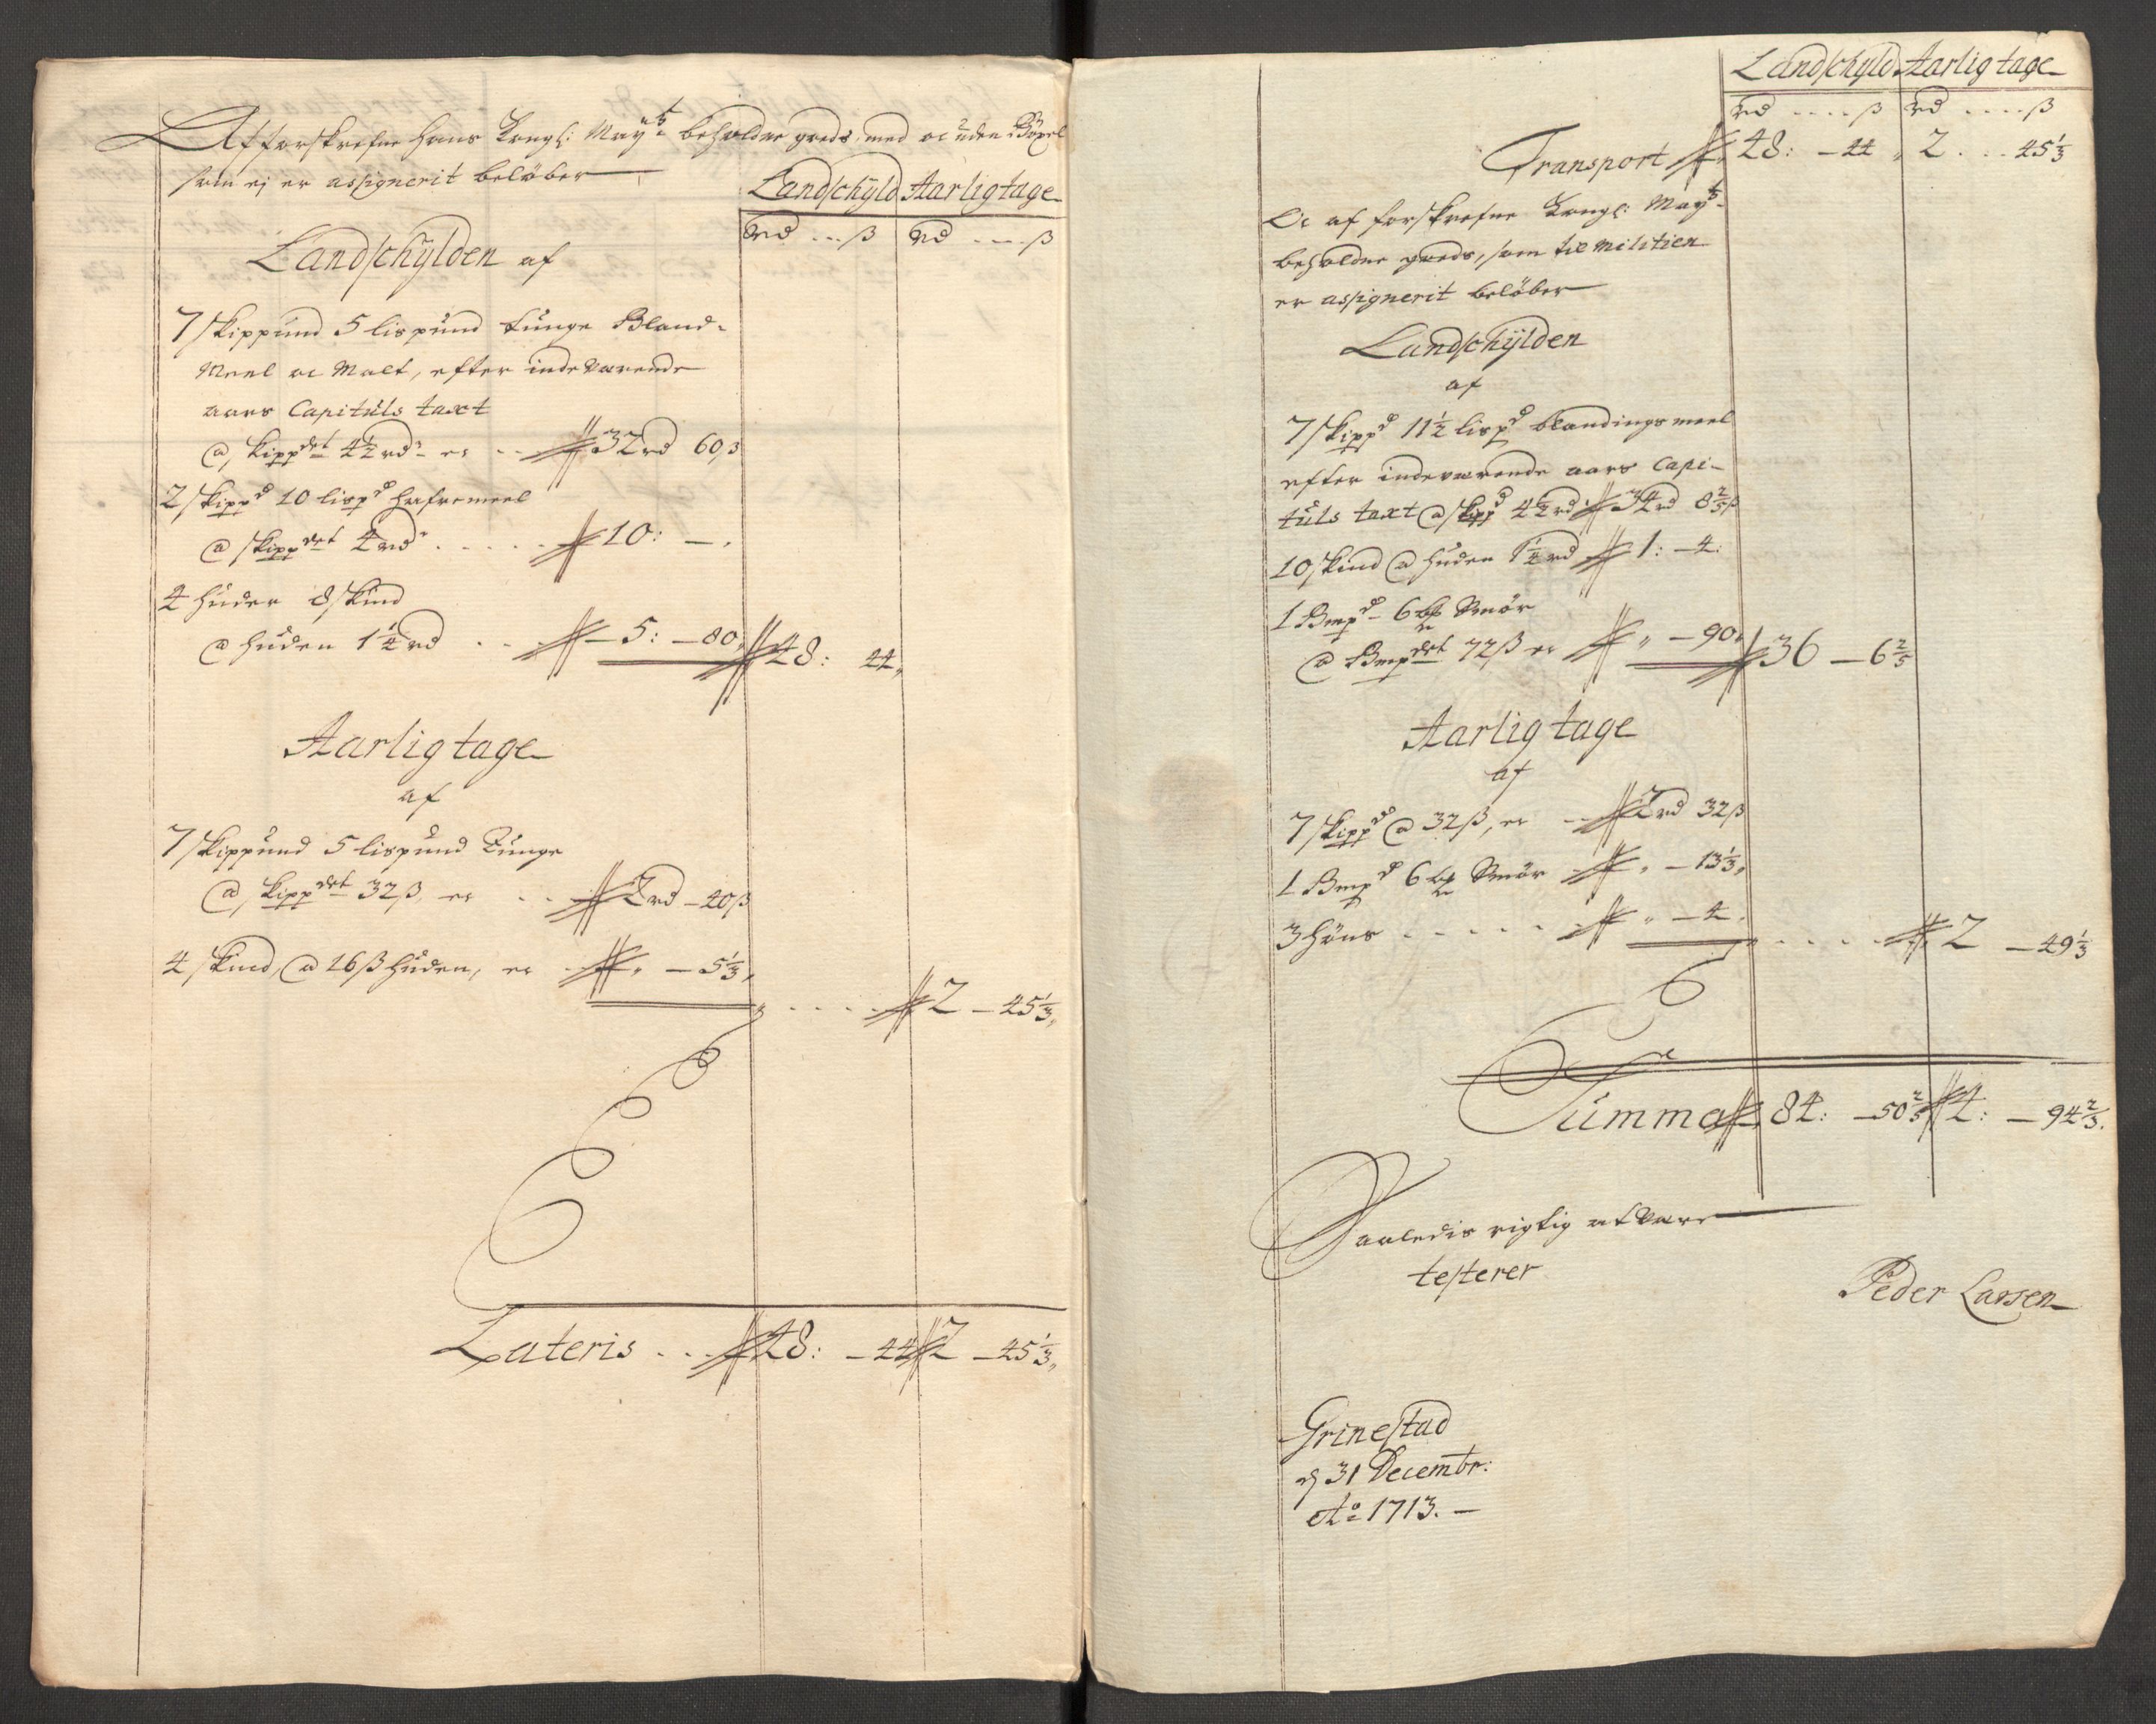 Af forskrefne Hans Kongl: Mayts beholdne gods, med oc uden Böxel
som ej er assignerit belöber
Landschyld Aarligtage
rd ... ß rd .... ß
Landschylden af
7 skippund 5 lispund tunge Bland-
Meel oc Malt, efter indeværende
aars Capituls taxt
@ skippdet 4½ rdr er .. 32 rd 60 ß
2 skippd 10 lispd hafremeel
@ skippdet 4 rdr ..... 10: — „
4 huder 8 skind
@ huden 1¼ rd .. 5: — 80 „ 48: 44 „
Aarligtage
af
7 skippund 5 lispund Tunge
@ skippdet 32 ß, er .. 2 rd — 40 ß
4 skind, @ 16 ß huden, er „ — 5⅓ „
.... 2 — 45⅓ „
Lateris ... 48: — 44 2 — 45⅓ „
Landschyld Aarligtage
rd .... ß rd .... ß
Transport 48: — 44 „ 2 ... 45⅓
Oc af forskrefne Kongl: Mayts
beholdne gods, som til Militien
er assignerit belöber
Landschylden
af
7 skippd 11½ lispd blandingsmeel
efter indeværende aars Capi-
tuls taxt @ skippd 4½ rd 34 rd 8⅖ ß
10 skind @ huden 1¼ rd 1: — 4:
1 Bmpd 6 Smör
@ Bmpdet 72 ß er „ — 90 „ 36 — 6⅖
Aarligtage
af
7 skippd @ 32 ß, er .. 2 rd 32 ß
1 Bmpd 6 Smör „ — 13⅓ „
3 höns ..... „ — 4 „
.... 2 — 49⅓
Summa 84: — 50⅖ 4: — 94⅔.
Saaledis rigtig at være
testerer
Peder Larsen
Grinestad
d 31 Decembr:
Ao 1713. —